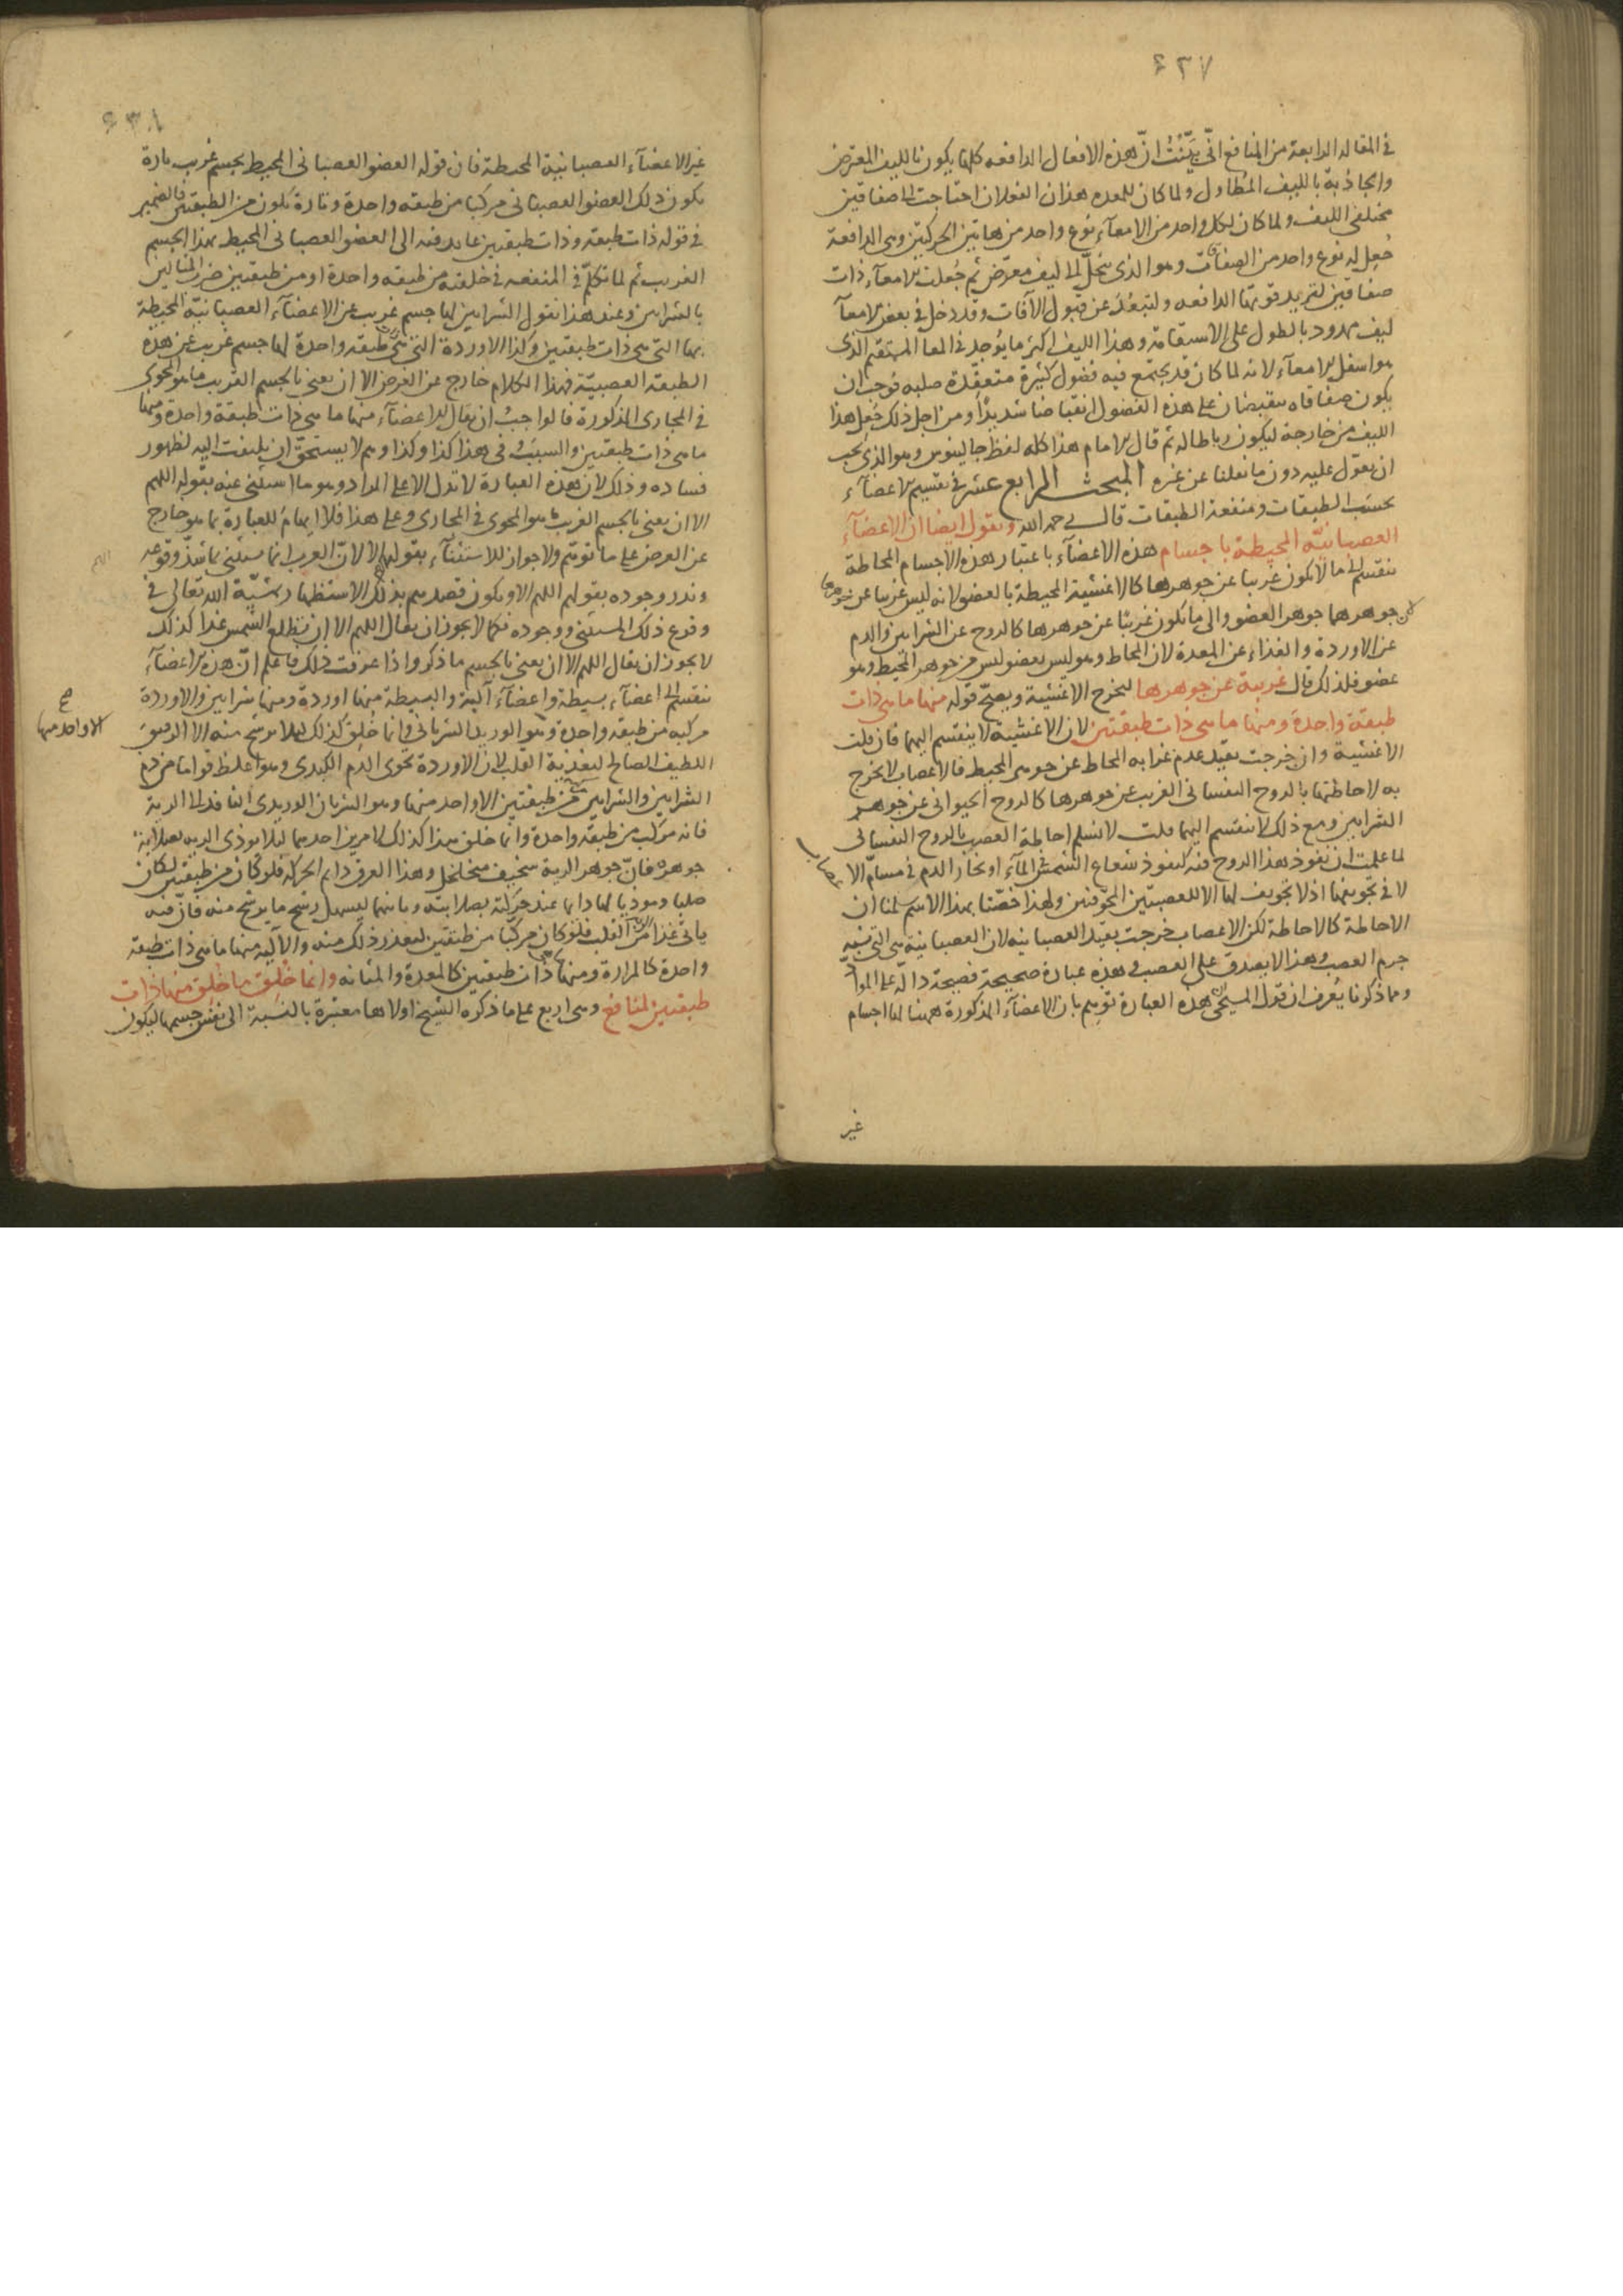 ٤٢٧
في المقالة الرابعة من المنافع انّي بَيَّنْتُ انّ هذه الافعال الدافعه كلها يكون بالليف المعترض
والجاذبة بالليف المُطاول ولما كان للمعده هذان الفعلان احتاجت الى صفاقين
مختلفي الليف ولما كان لكل واحد من الامعآء نوع واحد من هاتين الحركتين وهى الدافعة
جُعل له نوع واحد من الصفاقات وهو الذى ينحلّ الى ليف معترض ثم جُعلت الامعآء ذات
صفاقين لتزيد قوتها الدافعه ولتبعُدَ عن قبول الآفات وقد دخل في بعض الامعآ
ليف ممدود بالطول على الاستقامة وهذا الليف اكثر ما يُوجد في المعا المستقيم الذى
هو اسفل الامعآء لانه لما كان قد يجتمع فيه فضول كثيرة متعقّدة صلبه فوجب ان
يكون صفاقاه ينقبضان على هذه الفضول انقباضا شديدًا ومن اجل ذلك جُعل هذا
الليف من خارجة ليكون رباطا له ثم قال الامام هذا كله لفظ جالينوس وهو الذى يجب
ان يعوّل عليه دون ما نقلنا عن غره المبحث الرابع عشر في تقسيم الاعضآء
بحسب الطبقات ومنفعة الطبقات قال رحمه الله ونقول ايضا ان الاعضآء
العصبانيّه المحيطة باجسام هذه الاعضآء باعتبار هذه الاجسام المحاطة
تنقسم الى ما لا يكون غريبا عن جوهرها كالاغشية المحيطة بالعضو لانه ليس غريبا عن جوهرها
لان جوهرهما جوهر العضو والى ما يكون غريبًا عن جوهرها كالروح عن الشرايين والدم
عن الاوردة والغذاء عن المعدة لان المحاط وهو ليس بعضو ليس من جوهر المحيط وهو
عضو فلذلك قال غريبة عن جوهرها ليخرج الاغشية ويصحّ قوله منها ما هى ذات
طبقة واحدةَ ومنها ما هى ذات طبقتين لان الاغشية لا ينقسم اليهما فان قلت
الاغشية وان خرجت بقيد عدم غرابه المحاط عن جوهر المحيط فالاعصاب لا يخرج
به لاحاطتها بالروح النفسانى الغريب عن جوهرها كالروح الحيوانى عن جوهر
الشرايين ومع ذلك لا تنقسم اليهما قلت لا نسلم احاطة العصب بالروح النفسانى
لما علمت ان نفوذ هذا الروح فيه كنفوذ شعاع الشمس في المآء او بخار الدم في مسامّ الا
عصاب
لا في تجويفها اذ لا تجويف لها الا للعصبتين المجوّفتين ولهذا خصّتا بهذا الاسم سلمنا ان
الاحاطة كالاحاطة لكن الاعصاب خرجت بقيد العصبانيه لان العصبانية هى التي تشبه
جرم العصب وهذا لا يصدق على العصب وهذه عبارة صحيحة فصيحة دالّة على المراد
ومما ذكرنا يُعرف ان قول المسيحى ان هذه العبارة توهم بان الاعضآء المذكورة ههنا لها اجسام
غير
٤٣٨
غير الاعضآء العصبانية المحيطة فان قوله العضو العصبانى المحيط بجسم غريب تارة
يكون ذلك العضو العصبانى مركبا من طبقه واحدة وتارة يكون من الطبقتين فالضمير
في قوله ذات طبقه وذات طبقتين عايد فيه الى العضو العصبانى المحيط بهذا الجسم
الغريب ثم لما تكلّم في المنفعه في خلقته من طبقه واحدة او من طبقتين ضرب المثالين
بالشرايين وعند هذا نقول الشرايين لها جسم غريب عن الاعضآء العصبانيّة المحيطة
بها التي هى ذات طبقتين وكذا الاوردة التي هى طبقه واحدة لها جسم غريب عن هذه
الطبقة العصبيّة فهذا الكلام خارج عن الغرض الا ان يعنى بالجسم الغريب ما هو المحوى
في المجارى المذكورة فالواجبُ ان يقال للاعضآء منها ما هى ذات طبقة واحدة ومنها
ما هى ذات طبقتين والسببُ في هذا كذا وكذا وهم لا يستحقّ ان يلتفت اليه لظهور
فساده وذلك لان هذه العبارة لا تدل الا على المراد وهو ما استثنى عنه بقوله اللهم
الا ان يعنى بالجسم الغريب ما هو المحوى في المجارى وعلى هذا فلا ايهامَ للعبارة بما هو خارج
عن الغرض على ما توهّم ولا جواز للاستثنآء بقولهم الا لانّ العرب انما يستثنى بما شذّ وقوعه
اللهم
وندر وجوده بقولهم اللهم الا ويكون قصدهم بذلك الاستظهار بمشيّة الله تعالى في
وقوع ذلك المستثنى ووجوده فكما لا يجوز ان يقال اللهم الا ان تطلع الشمس غدا كذلك
لا يجوز ان يقال اللهم الا ان يعنى بالجسم ما ذكر واذا عرفت ذلك فاعلم انّ هذه الاعضآء
تنقسم الى اعضآء بسيطة واعضآء آلية والبسيطة منها اوردة ومنها شرايين والاوردة
الا واحد منها
مركبه من طبقه واحدة وهو الوريد الشريانى وانما خُلق كذلك لئلا يرشّح منه الا الدم الرقيق
اللطيف الصالح لتغذية القلب لان الاوردة تحوى الدم الكبدى وهو اغلظ قواما من دم
الشرايين والشرايين من طبقتين الا واحد منها وهو الشريان الوريدى النافذ الى الرية
فانه مركب من طبقه واحدة وانما خلق هذا كذلك لامرين احدهما ليلا يوذى الرية بصلابة
جوهره فانّ جوهر الرية سخيف متخلخل وهذا العرق دايم الحركه فلو كان من طبقتين لكان
صلبا وموذيا لها دايما عند حركته بصلابته وثانيهما ليسهل رشح ما يرشح منه فان فيه
ياتى غذا الرئة من القلب فلو كان مركبًا من طبقتين لتعذر ذلك منه والآليّة منها ما هى ذات طبقه
واحدة كالمرارة ومنها ما هى ذات طبقتين كالمعدة والمثانه وانما خُلق ما خُلق منها ذات
طبقتين لمنافع وهى اربع على ما ذكره الشيخ اولاها معتبرة بالنسبة الى نفس جسمها ليكون